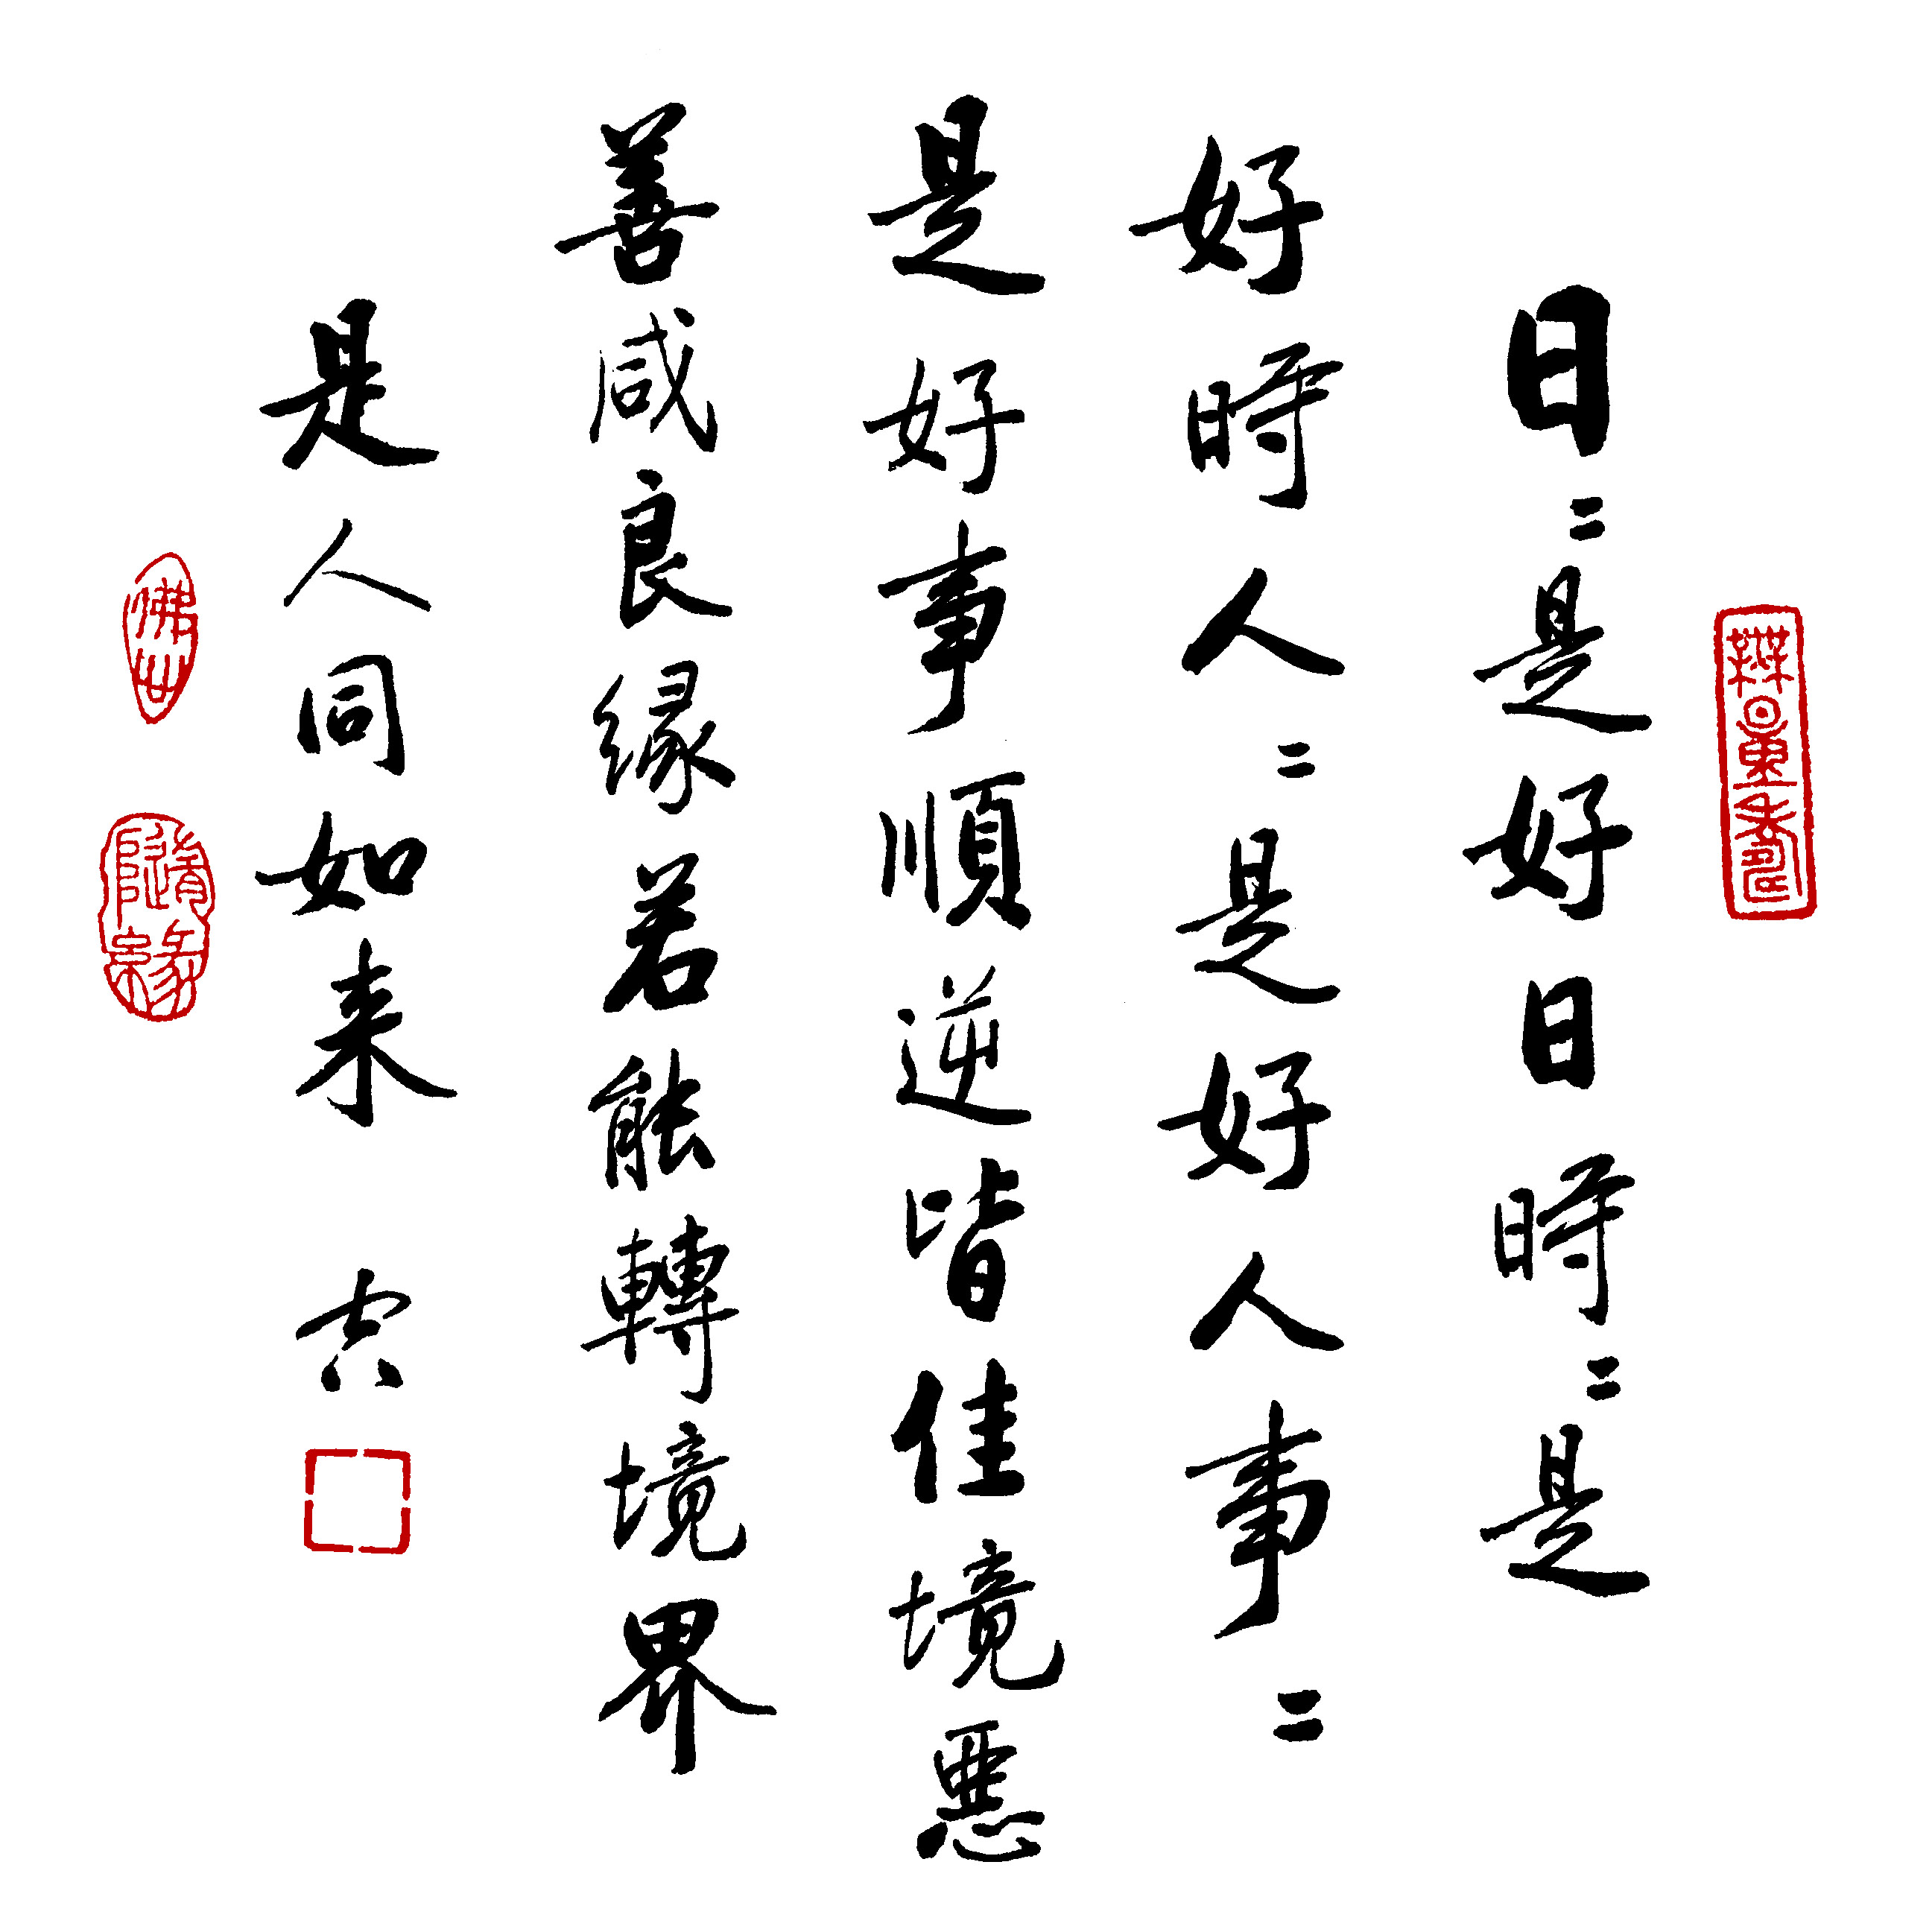 日〻是好日時〻是
好時人〻是好人事〻
是好事順逆皆佳境惡
善咸良緣若能轉境界
是人同如来
隨緣